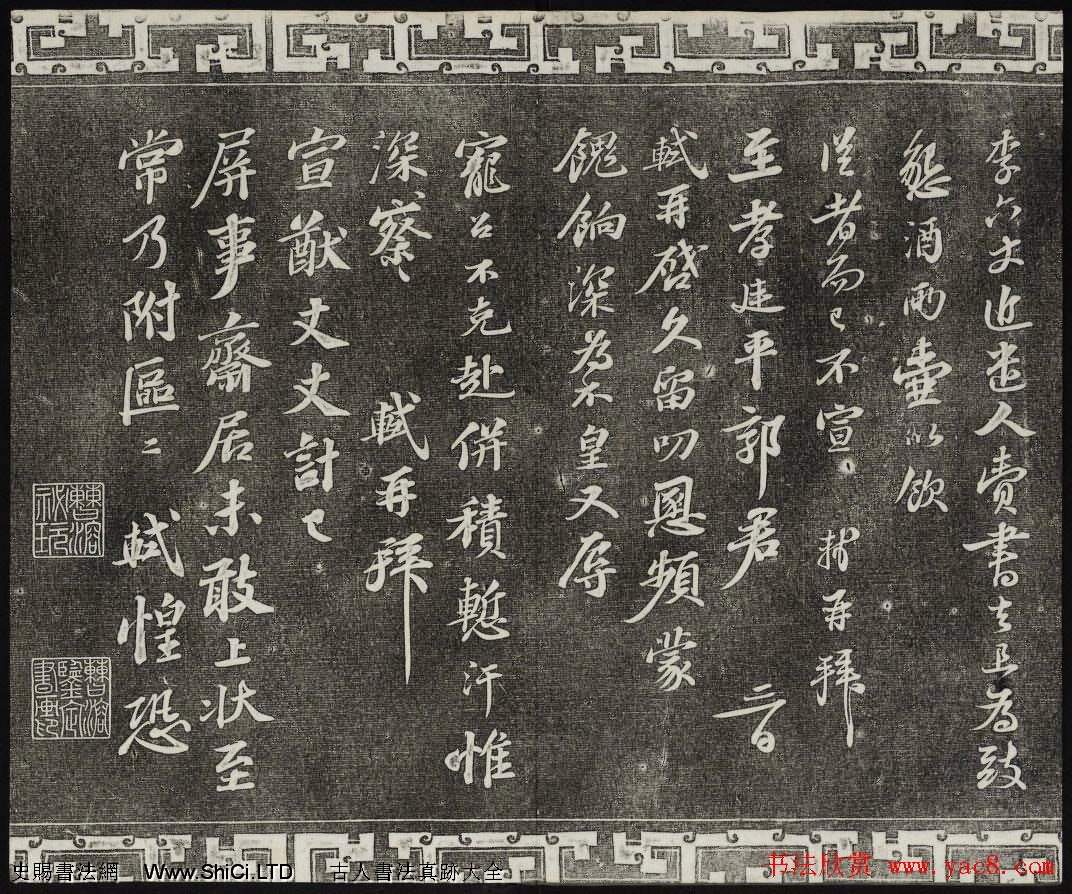 李六丈近遣人賷書去且為致
懇酒兩壺以飲
從者而已不宣 拜再拜
至孝廷平郭君 二日
軾再啓久留叨恩頻蒙
餽餉深為不皇又辱
寵召不克赴併積慙汗惟
深察〻 軾再拜
宣猷丈丈計已
屏事齋居未敢上状至
常乃附區〻 軾惶恐
曹溶
秘玩
曹溶
鑒定
書畫
史賜書法網 Www.ShiCi.LTD 古人書法真跡大全
书法欣赏 www.yac8.com